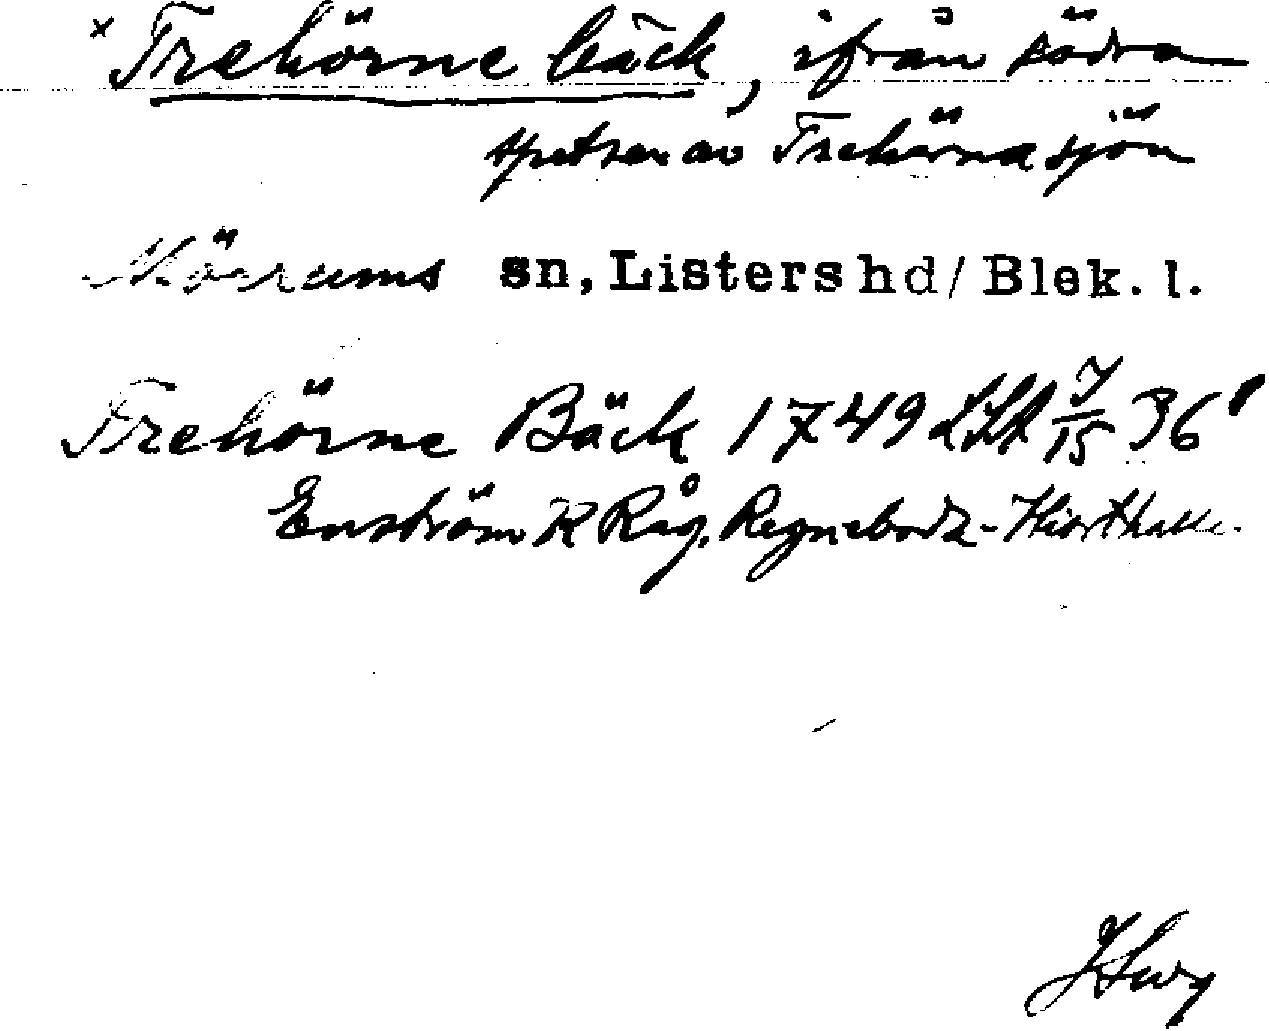 x Trehörne bäck, ifrån södra
spetsen av Trehörnasjön
Mörrums sn, Listers hd/ Blek. l.
Trehörne Bäck 1749 LSA 7/15 36
Enström K Råg. Regnebodz-